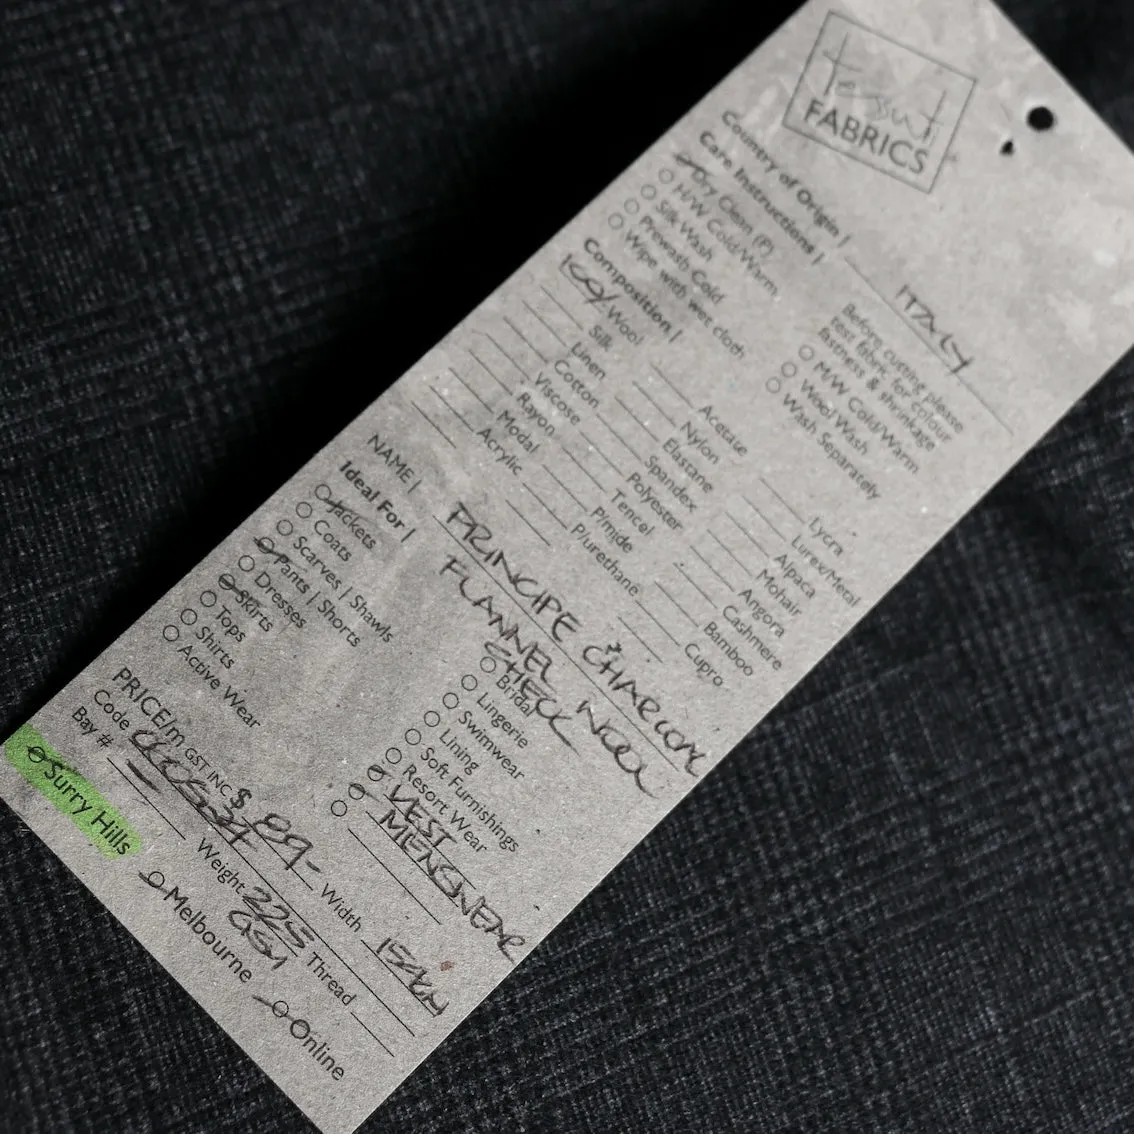 Tessuti
FABRICS
Country of Origin | ITALY
Care Instructions |
Dry Clean (P)
H/W Cold/Warm
Silk Wash
Prewash Cold
Wipe with wet cloth
Before cutting please
test fabric for colour
fastness & shrinkage
M/W Cold/Warm
Wool Wash
Wash Separately
Composition |
100% Wool
Silk
Linen
Cotton
Viscose
Rayon
Modal
Acrylic
Acetate
Nylon
Elastane
Spandex
Polyester
Tencel
P/mide
P/urethane
Lycra
Lurex/Metal
Alpaca
Mohair
Angora
Cashmere
Bamboo
Cupro
NAME | PRINCIPE CHARCOAL
FLANNEL WOOL
CHECK
Ideal For |
Jackets
Coats
Scarves | Shawls
Pants | Shorts
Dresses
Skirts
Tops
Shirts
Active Wear
Bridal
Lingerie
Swimwear
Lining
Soft Furnishings
Resort Wear
VEST
MENSWEAR
PRICE/m GST INC $ 89- Width 150cm
Code
Weight 225 GSM Thread
Bay #
Surry Hills
Melbourne
Online